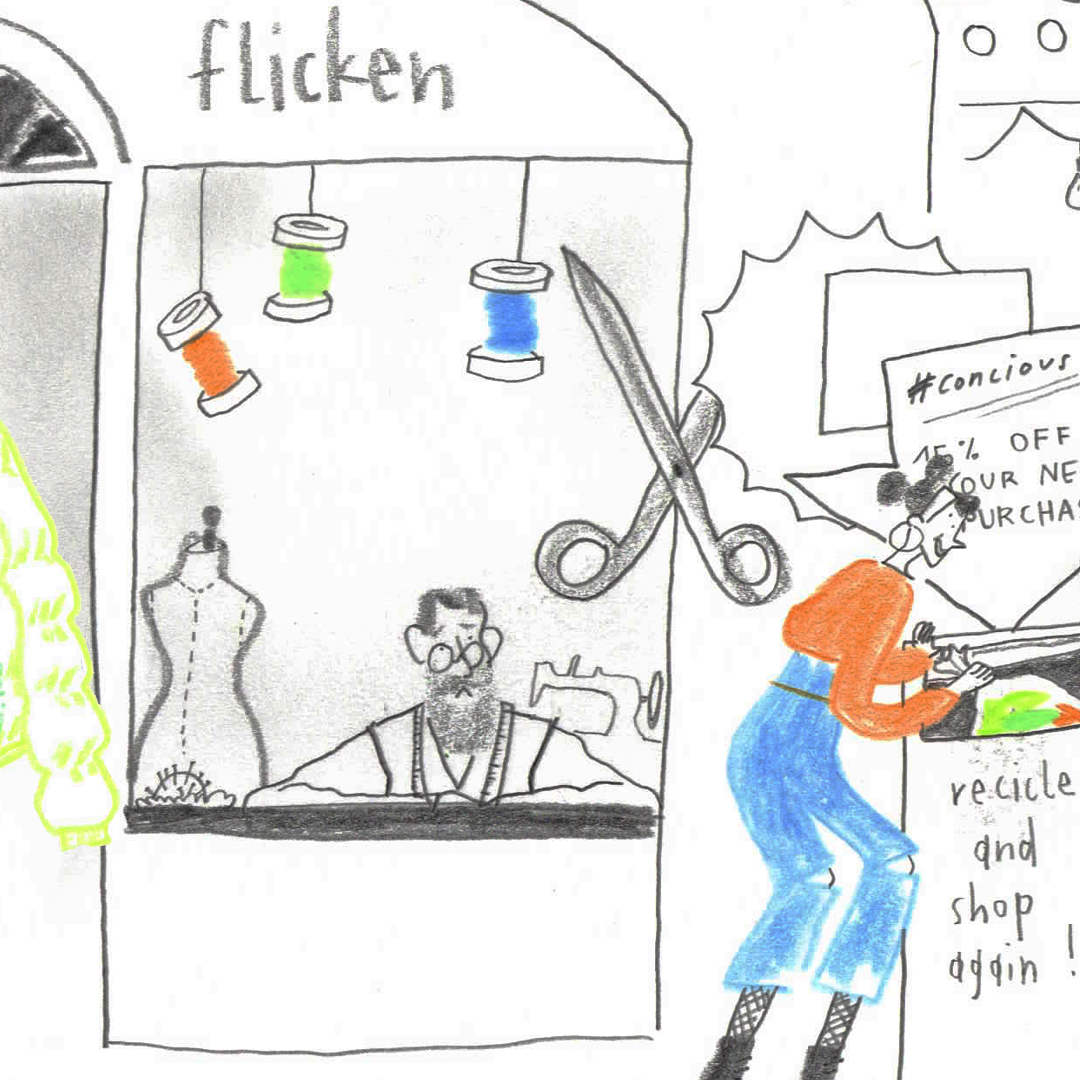 flicken
#concious
15% OFF
OUR NE
URCHA
recicle
and
shop
again !